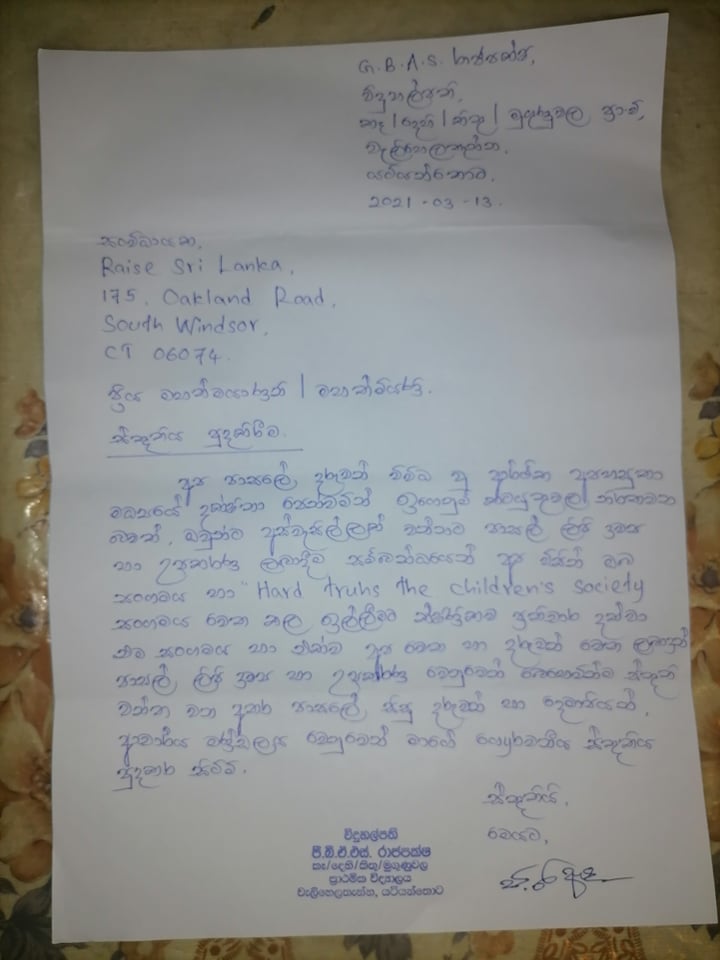 G.B.A.S. රාජපක්ෂ,
විදුහල්පති,
කෑ/දෙහි/කිතු/මුගුණුවල ප්‍රා.වි,
වැලිහෙලතැන්න,
යටියන්තොට.
2021-03-13.
සංවිධායක,
Raise Sri Lanka,
175, Oakland Road,
South Windsor,
CT 06074.
ප්‍රිය මහත්මයාණනි / මහත්මියනි,
ස්තූතිය පුදකිරීම.
අප පාසලේ දරුවන් විවිධ වූ ආර්ථික අපහසුතා
මධ්‍යයේ දක්ෂතා පෙන්වමින් ඉගෙනුම් කටයුතුවල නිරතවන
බවත්, ඔවුන්ට අත්වැසිල්ලක් වන්නට පාසල් ලිපි ද්‍රව්‍ය
හා උපකරණ ලබාදීම සම්බන්ධයෙන් අප විසින් ඔබ
සංගමය හා "Hard truhs the children's society
සංගමය වෙත කල ඉල්ලීමට ක්ෂණිකව ප්‍රතිචාර දක්වා
එම සංගමය හා එක්ව අප වෙත හා දරුවන් වෙත ලබාදුන්
පාසල් ලිපි ද්‍රව්‍ය හා උපකරණ වෙනුවෙන් බෙහෙවින්ම ස්තූති
වන්ත වන අතර පාසලේ සිසු දරුවන් හා දෙමාපියන්,
ආචාර්ය මණ්ඩලය වෙනුවෙන් මාගේ ගෞරවනීය ස්තූතිය
පුදකර සිටිමි.
ස්තූතියි,
මෙයට,
විදුහල්පති
ජී.බී.ඒ.එස්. රාජපක්ෂ
කෑ/දෙහි/කිතු/මුගුණුවල
ප්‍රාථමික විද්‍යාලය
වැලිහෙලතැන්න, යටියන්තොට